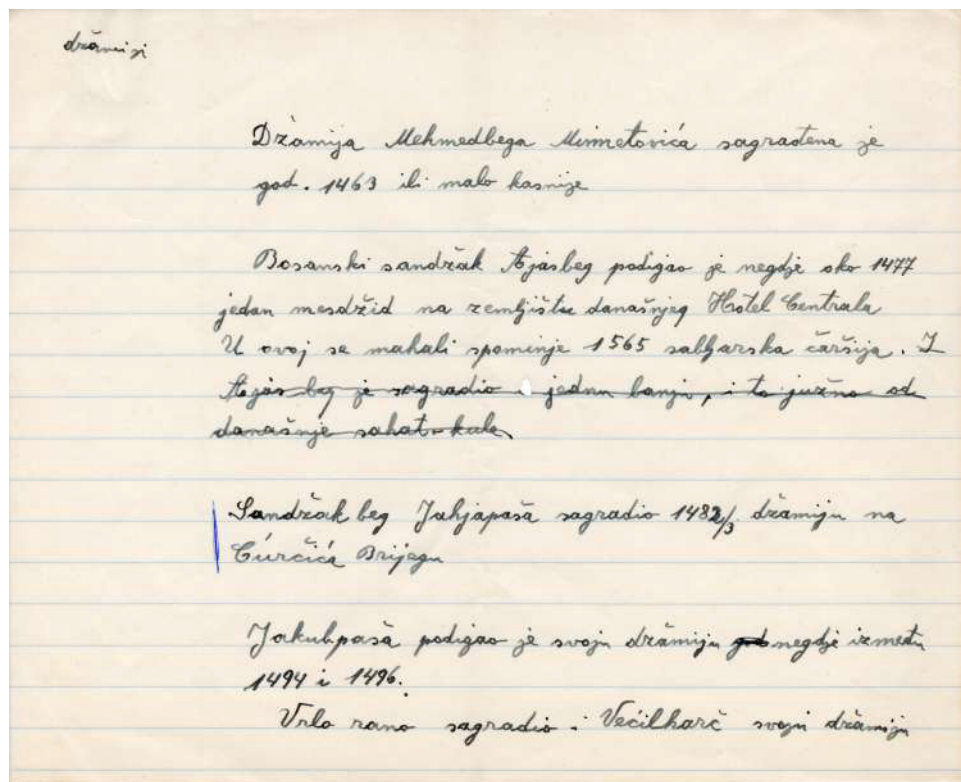 džamije
Džamija Mehmedbega Minetovića sagrađena je
god. 1463 ili malo kasnije
Bosanski sandžak Ajasbeg podigao je negdje oko 1477
jedan mesdžid na zemljištu današnjeg Hotel Centrala
U ovoj se mahali spominje 1565 sabljarska čaršija. I
Ajas beg je sagradio i jednu banju, i to južno od
današnje sahat-kule
Sandžak beg Jahjapaša sagradio 1482/3 džamiju na
Ćurčića Brijegu
Jakubpaša podigao je svoju džamiju god negdje između
1494 i 1496.
Vrlo rano sagradio i Većilharč svoju džamiju